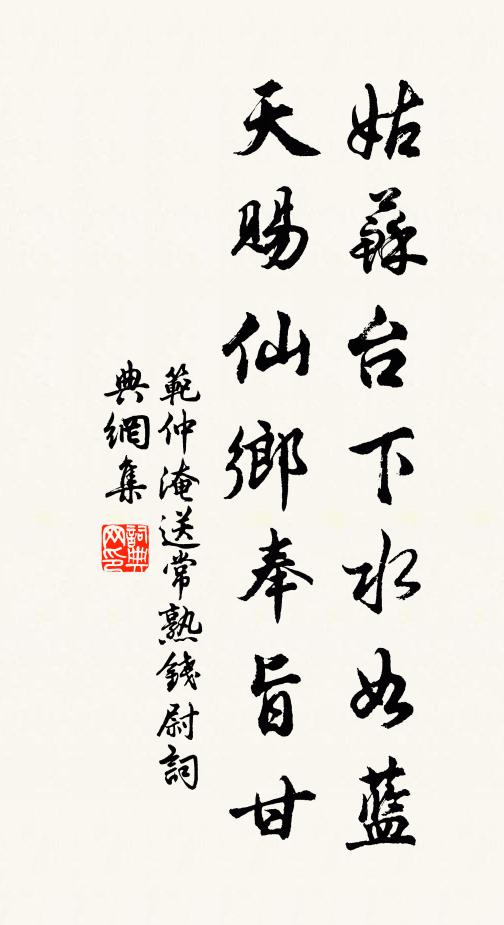 姑蘇台下水如藍
天賜仙鄉奉旨甘
範仲淹送常熟錢尉詞
典網集
詞典网印